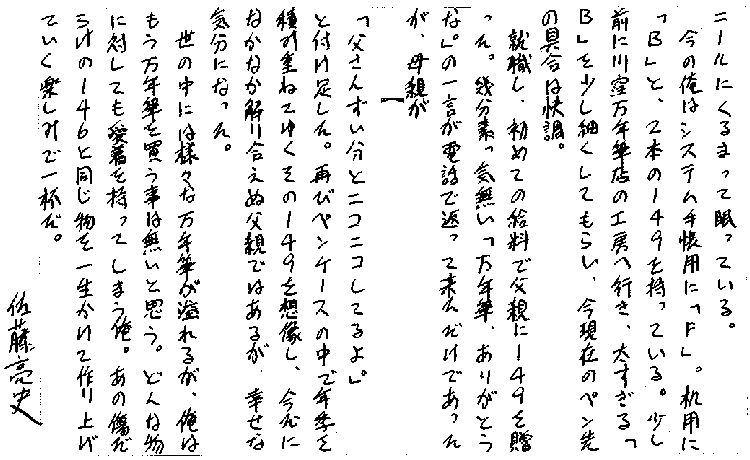 ニールにくるまって眠っている。
今の俺はシステム手帳用に「F」。机用に
「B」と、2本の149を持っている。少し
前に川窪万年筆店の工房へ行き、太すぎる「
B」を少し細くしてもらい、今現在のペン先
の具合は快調。
就職し、初めての給料で父親に149を贈
った。幾分素っ気無い「万年筆、ありがとう
な。」の一言が電話で返って来ただけであった
が、母親が
「父さんずい分とニコニコしてるよ。」
と付け足した。再びペンケースの中で年季を
積み重ねてゆくその149を想像し、今だに
なかなか解り合えぬ父親ではあるが、幸せな
気分になった。
世の中には様々な万年筆が溢れるが、俺は
もう万年筆を買う事は無いと思う。どんな物
に対しても愛着を持ってしまう俺。あの傷だ
らけの146と同じ物を一生かけて作り上げ
ていく楽しみで一杯だ。
佐藤亮史